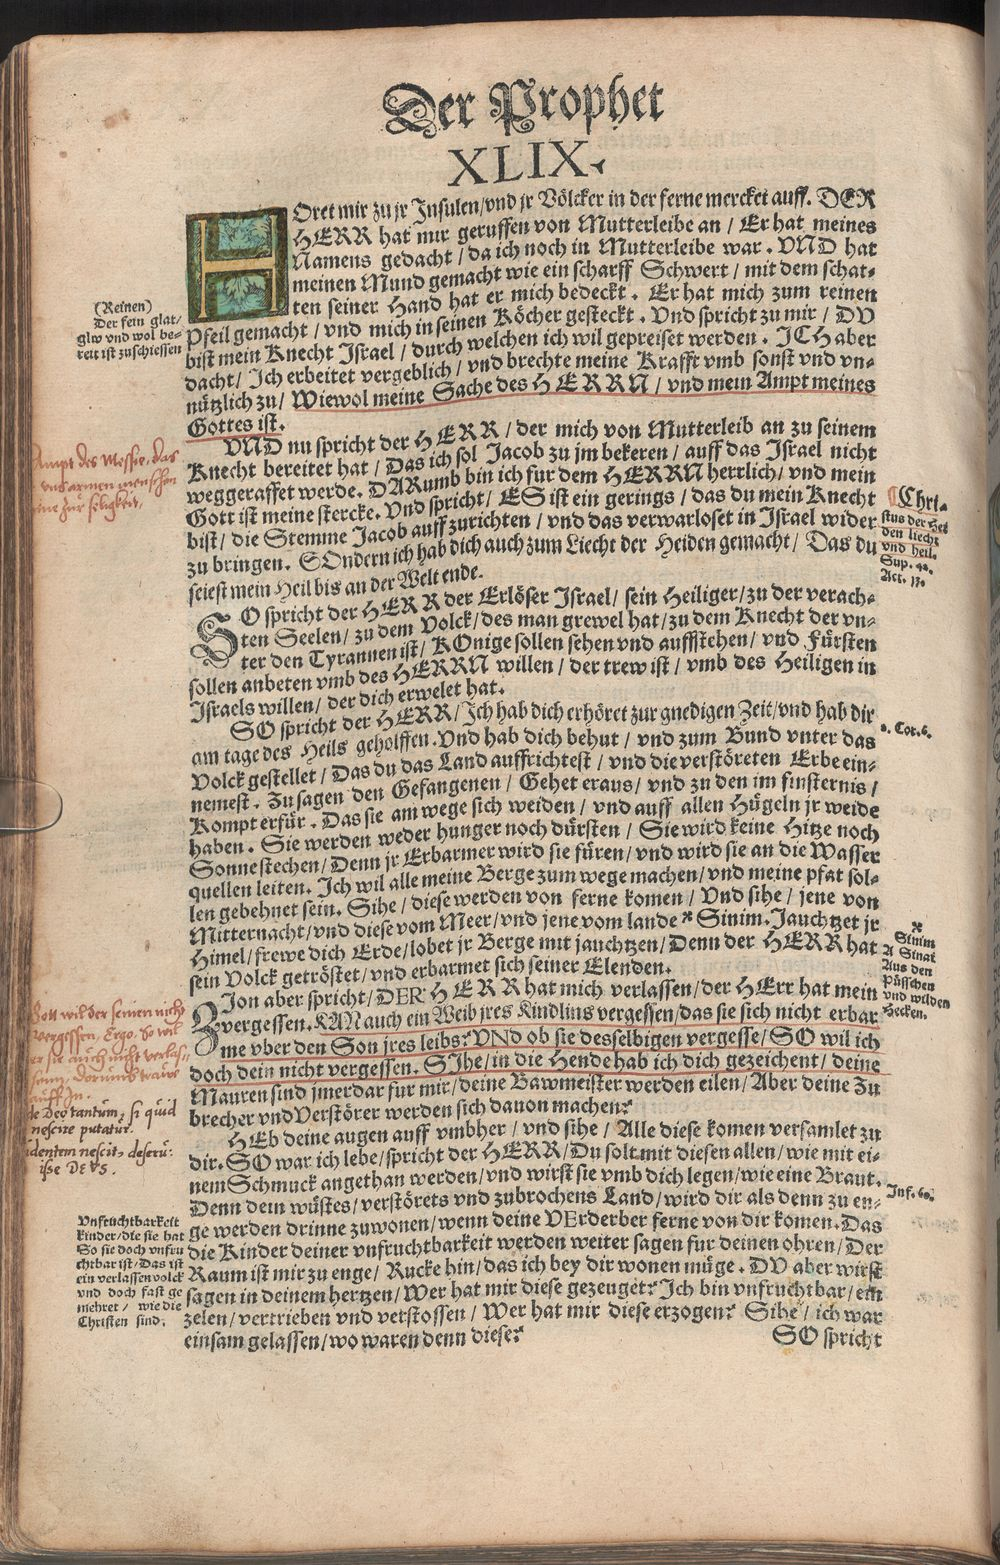 Der Prophet
XLIX.
HOret mir zu jr Insulen/vnd jr Völcker in der ferne mercket auff. DER
HERR hat mir geruffen von Mutterleibe an / Er hat meines
Namens gedacht / da ich noch in Mutterleibe war. VND hat
meinen Mund gemacht wie ein scharff Schwert / mit dem schat-
ten seiner Hand hat er mich bedeckt. Er hat mich zum reinen
Pfeil gemacht / vnd mich in seinen Köcher gesteckt. Vnd spricht zu mir / DV
bist mein Knecht Israel / durch welchen ich wil gepreiset werden. ICH aber
dacht / Ich erbeitet vergeblich / vnd brechte meine Krafft vmb sonst vnd vn-
nützlich zu / Wiewol meine Sache des HERRN / vnd mein Ampt meines
Gottes ist.
VND nu spricht der HERR / der mich von Mutterleib an zu seinem
Knecht bereitet hat / Das ich sol Jacob zu jm bekeren / auff das Israel nicht
weggeraffet werde. DARumb bin ich fur dem HERRN herrlich / vnd mein
Gott ist meine stercke. Vnd spricht / ES ist ein gerings / das du mein Knecht
bist / die Stemme Jacob auff zurichten / vnd das verwarloset in Israel wider
zu bringen. SOndern ich hab dich auch zum Liecht der Heiden gemacht / Das du
seiest mein Heil bis an der Welt ende.
SO spricht der HERR der Erlöser Israel / sein Heiliger / zu der verach-
ten Seelen / zu dem Volck / des man grewel hat / zu dem Knecht der vn-
ter den Tyrannen ist / KOnige sollen sehen vnd auffstehen / vnd Fürsten
sollen anbeten vmb des HERRN willen / der trew ist / vmb des Heiligen in
Israels willen / der dich erwelet hat.
SO spricht der HERR / Ich hab dich erhöret zur gnedigen Zeit / vnd hab dir
am tage des Heils geholffen. Vnd hab dich behut / vnd zum Bund vnter das
Volck gestellet / Das du das Land auffrichtest / vnd die verstöreten Erbe ein-
nemest. Zu sagen den Gefangenen / Gehet eraus / vnd zu den im finsternis /
Kompt erfür. Das sie am wege sich weiden / vnd auff allen Hügeln jr weide
haben. Sie werden weder hunger noch dürsten / Sie wird keine Hitze noch
Sonne stechen / Denn jr Erbarmer wird sie füren / vnd wird sie an die Wasser
quellen leiten. Ich wil alle meine Berge zum wege machen / vnd meine pfat sol-
len gebehnet sein. Sihe / diese werden von ferne komen / Vnd sihe / jene von
Mitternacht / vnd diese vom Meer / vnd jene vom lande * Sinim. Jauchtzet jr
Himel / frewe dich Erde / lobet jr Berge mit jauchtzen / Denn der HERR hat
sein Volck getröstet / vnd erbarmet sich seiner Elenden.
Zion aber spricht / DER HERR hat mich verlassen / der HErr hat mein
vergessen. KAN auch ein Weib jres Kindlins vergessen / das sie sich nicht erbar
me vber den Son jres leibs? VND ob sie desselbigen vergesse / SO wil ich
doch dein nicht vergessen. SIhe / in die Hende hab ich dich gezeichent / deine
Mauren sind jmerdar fur mir / deine Bawmeister werden eilen / Aber deine Zu
brecher vnd Verstörer werden sich dauon machen?
HEb deine augen auff vmbher / vnd sihe / Alle diese komen versamlet zu
dir. SO war ich lebe / spricht der HERR / Du solt mit diesen allen / wie mit ei-
nem Schmuck angethan werden / vnd wirst sie vmb dich legen / wie eine Braut.
Denn dein wüstes / verstörets vnd zubrochens Land / wird dir als denn zu en-
ge werden drinne zuwonen / wenn deine VErderber ferne von dir komen. Das
die Kinder deiner vnfruchtbarkeit werden weiter sagen fur deinen ohren / Der
Raum ist mir zu enge / Rucke hin / das ich bey dir wonen müge. DV aber wirst
sagen in deinem hertzen / Wer hat mir diese gezeuget? Ich bin vnfruchtbar / ein
zelen / vertrieben vnd verstossen / Wer hat mir diese erzogen? Sihe / ich war
einsam gelassen / wo waren denn diese?
SO spricht
(Reinen)
Der fein glat /
glw vnd wol be-
reit ist zuschiessen
Ampt des Messie, das
vns armen menschen
zur seligkeit,
Gott wil der seinen nicht
vergessen, Ergo. So wil
er sie auch nicht verlas-
senn, dorumb trawe
auff In.
de Deo tantum, si quid
nescire putatur.
identem nescit, deseru-
isse DEVS.
Vnfruchtbarkeit
kinder / die sie hat
So sie doch vnfru
chtbar ist / Das ist
ein verlassen volck
vnd doch fast ge
mehret / wie die
Christen sind.
Chri-
stus der Hei
den liecht
vnd heil.
Sup. 42.
Act. 13.
2. Cor. 6.
*
Sinim
A Sinai
Aus den
Püsschen
vnd wilden
Hecken.
Inf. 60.